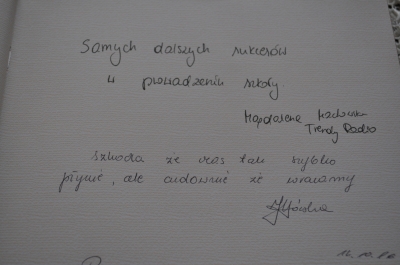 Samych dalszych sukcesów
w prowadzeniu szkoły.
Magdalena
Trendy Radio
szkoda że czas tak szybko
płynie, ale cudownie że wracamy